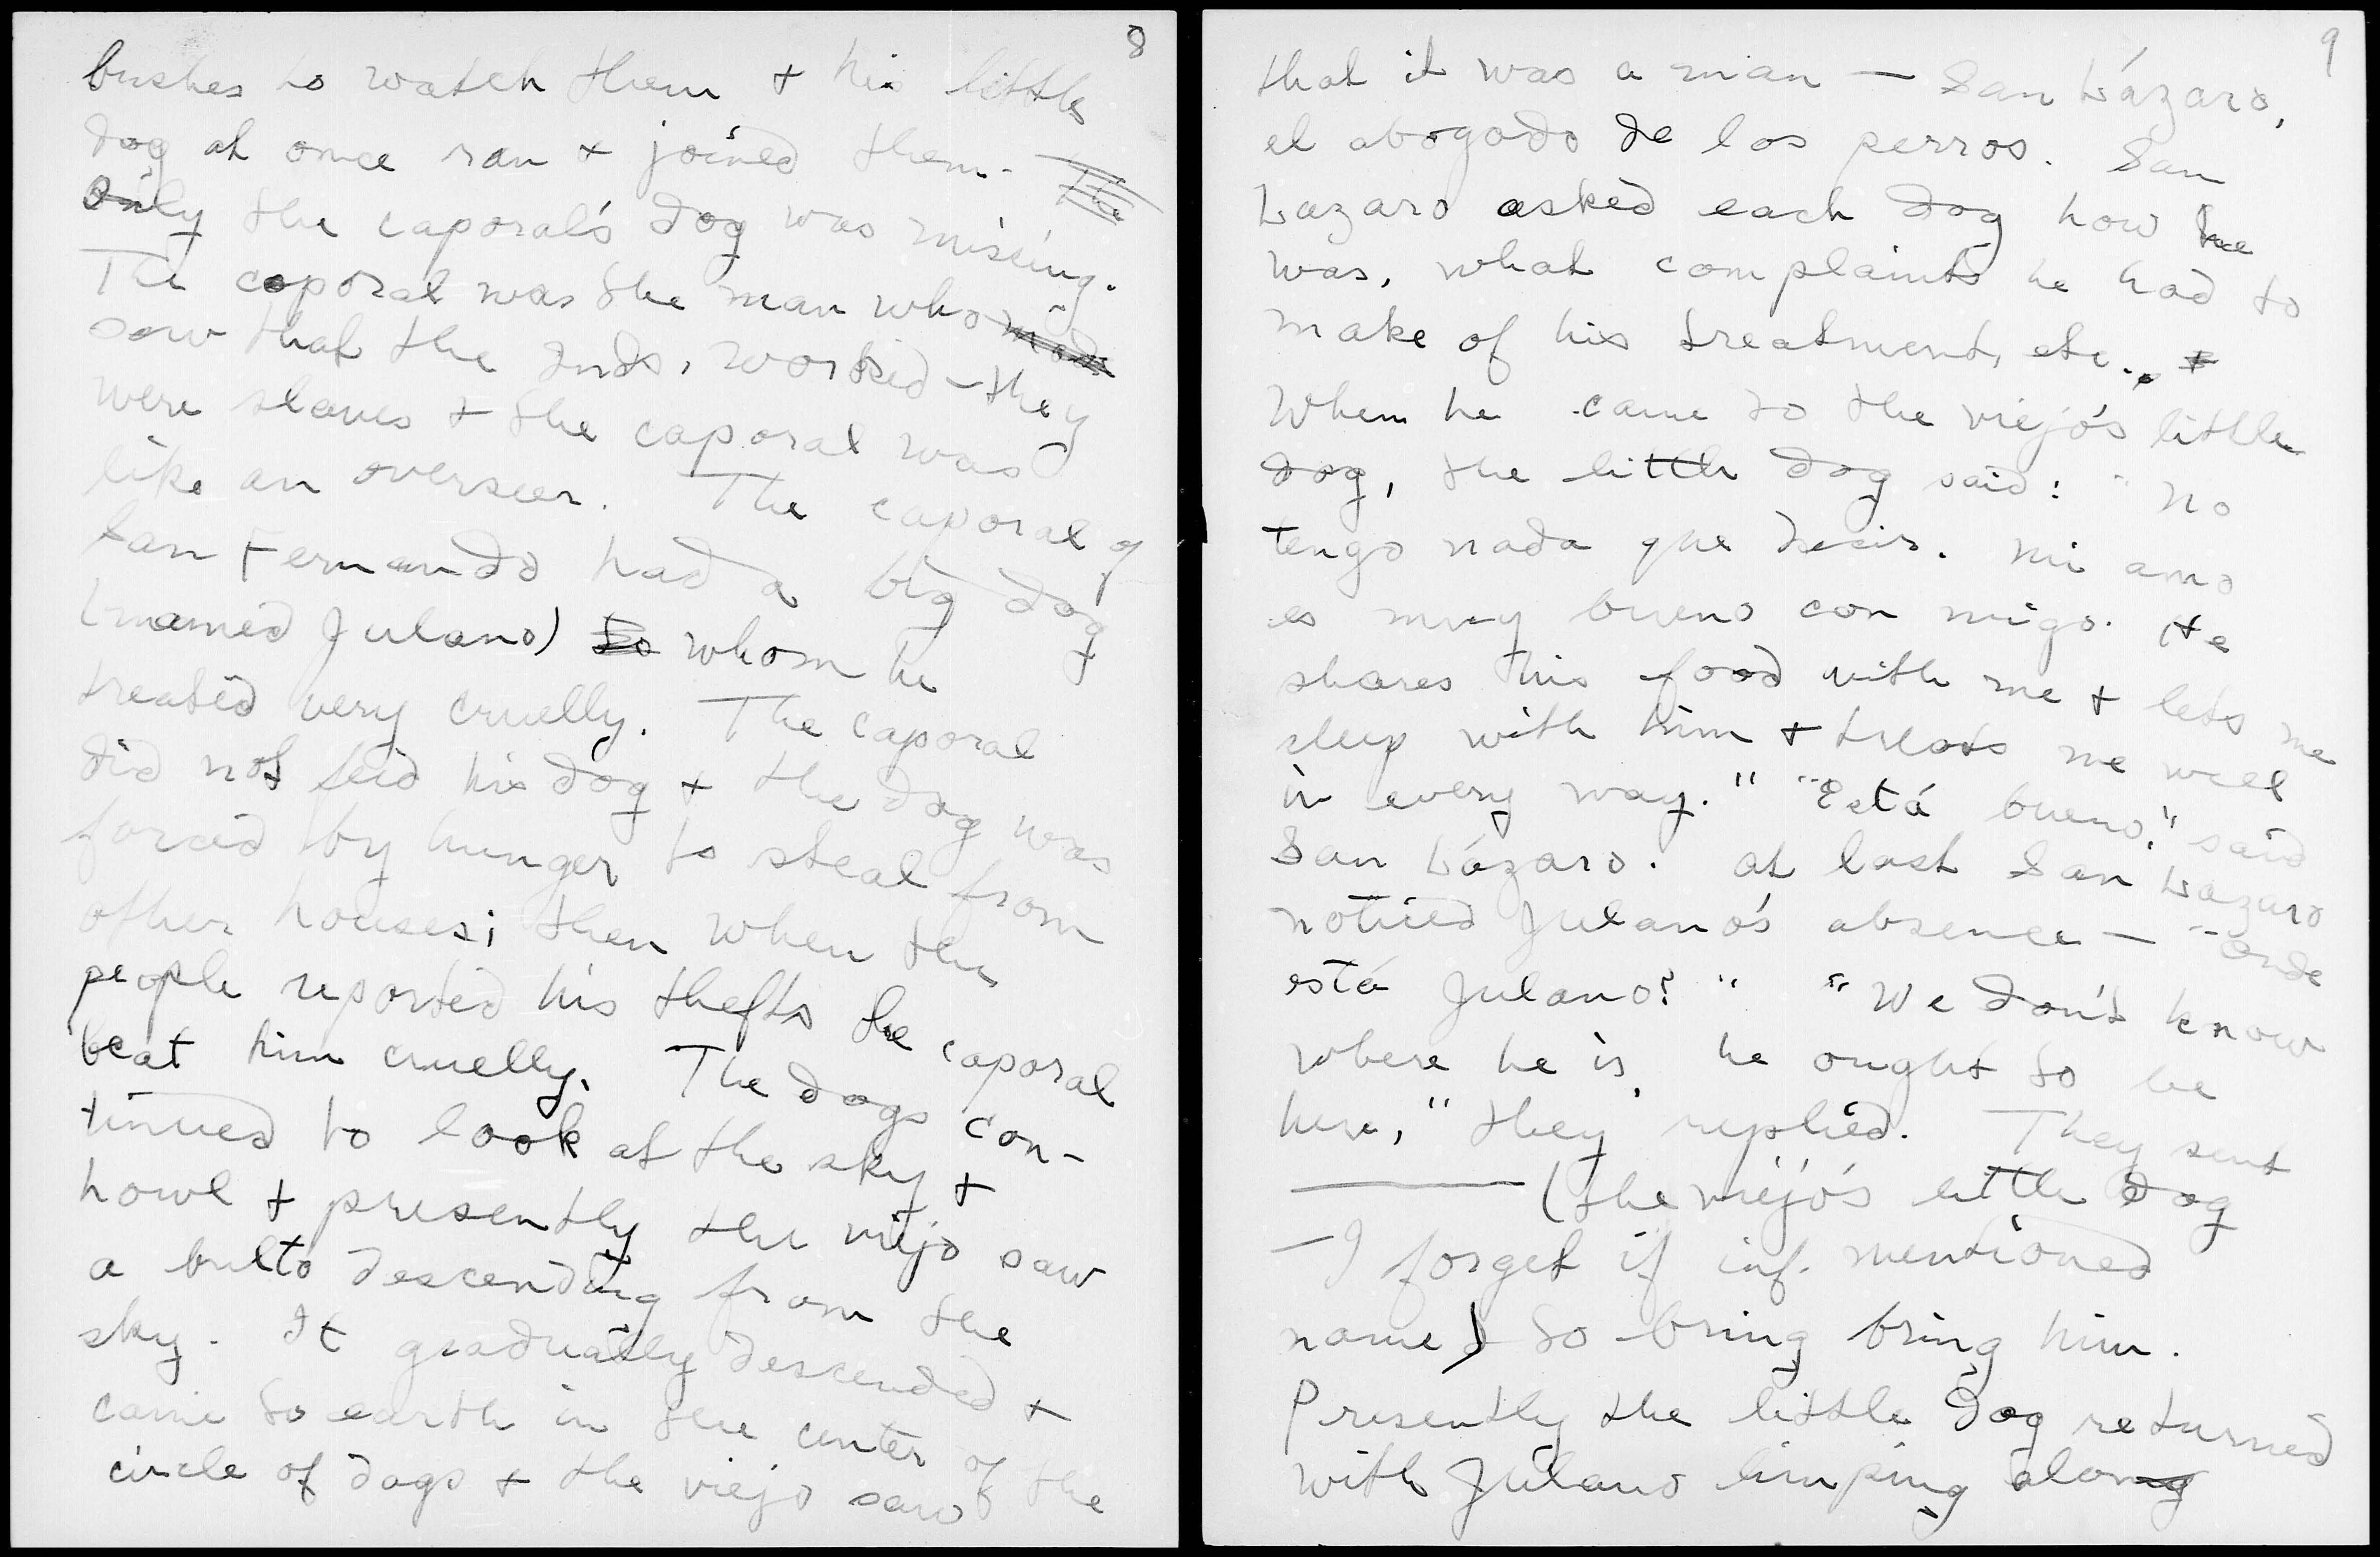 8
bushes to watch them + his little
dog at once ran + joined them. The
Only the caporal's dog was missing.
The caporal was the man who made
saw that the Inds. worked - they
were slaves + the caporal was
like an overseer. The caporal of
San Fernando had a big dog
(named Julano) to whom he
treated very cruelly. The caporal
did not feed his dog + the dog was
forced by hunger to steal from
other houses; then when the
people reported his thefts the caporal
beat him cruelly. The dogs con-
tinued to look at the sky +
howl + presently the viejo saw
a bulto descending from the
sky. It gradually descended +
came to earth in the center of the
circle of dogs + the viejo saw
9
that it was a man — San Lázaro,
el abogado de los perros. San
Lazaro asked each dog how he
was, what complaints he had to
make of his treatment, etc. +
When he came to the viejo's little
dog, the little dog said: "No
tengo nada que decir. Mi amo
es muy bueno con migo. He
shares his food with me + lets me
sleep with him + treats me well
in every way." "Está bueno," said
San Lázaro. At last San Lazaro
noticed Julano's absence — "Onde
está Julano?" "We don't know
where he is, he ought to be
here," they replied. They sent
——— (the viejo's little dog
— I forget if inf. mentioned
name) to bring bring him.
Presently the little dog returned
with Julano limping along